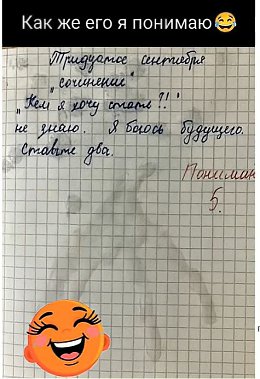 Как же его я понимаю😂
Тридцатое сентября
"сочинение"
"Кем я хочу стать?!"
не знаю. Я боюсь будущего.
Ставьте два.
Понимаю
5.